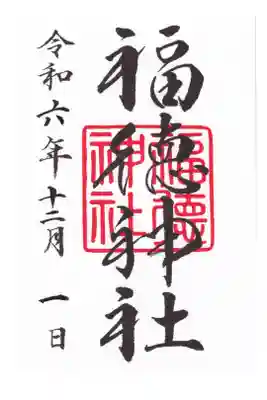 福徳神社
福德
神社
令和六年十二月一日